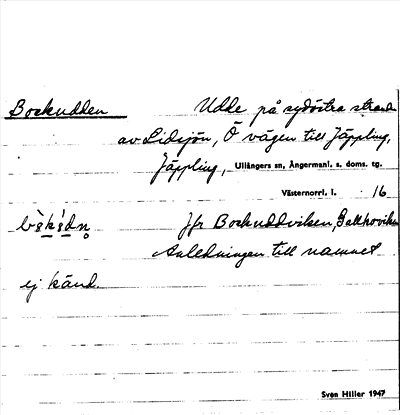 Bockudden Udde på sydöstra stranden
av Lidsjön, Ö vägen till Jäppling,
Jäppling, Ullångers sn, Ångermanl. s. doms. tg.
Västernorrl. l. 16
Jfr Bockuddviken,
Anledningen till namnet
ej känd.
Sven Hiller 1947